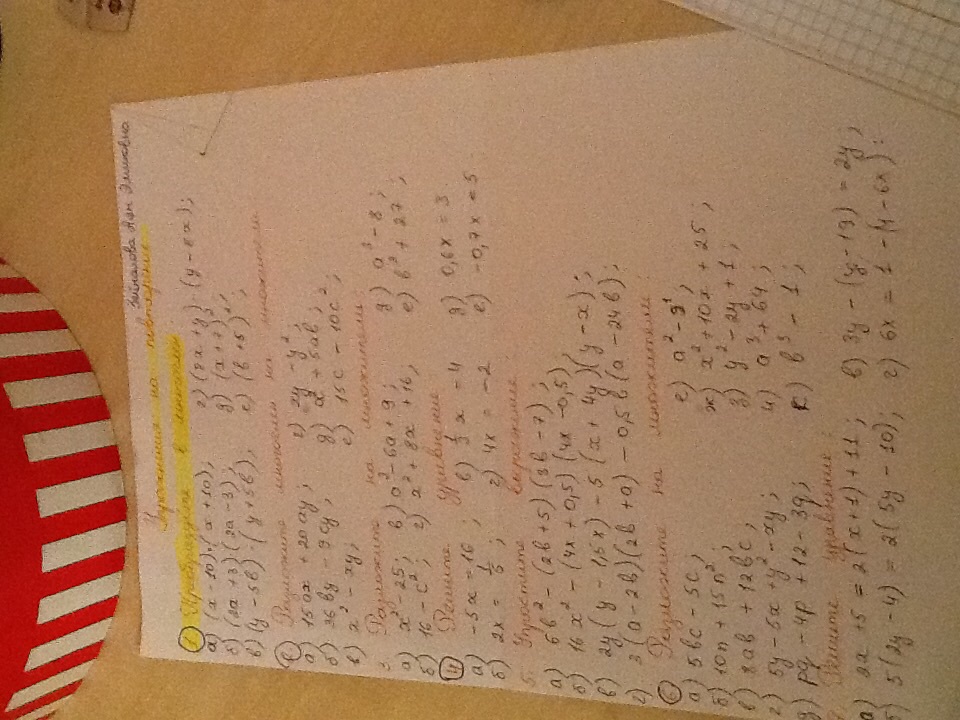 Упражнения на повторение
1. Преобразуйте в многочлен
а) (x - 10)·(x + 10);
б) (2a + 3)(2a - 3);
в) (y - 5b)·(y + 5b);
г) (8x + y)·(y - 8x);
д) (a + 2)³
е) (b + 5)
Разложите многочлен на множители
а) 15ax + 20ay;
б) 36by - 9cy;
в) x² - xy;
г) xy - y²;
е) 15c - 10c²;
3. Разложите на множители
а) x² - 25;
б) 16 - c²;
в) a² - 6a + 9;
г) x² + 8x + 16;
д) a³ - 8;
е) b³ + 27;
4 Решите уравнение
а) -5x = 16;
б) 2x = 1/5;
в) 1/3 x = 4
г) 4x = -2
д) 0,6x = 3
е) -0,7x = 5
5. Упростите выражение
а) 6b² - (2b + 5)(3b - 7);
б) 16x² - (4x + 0,5)(4x - 0,5)
в) 2y(y - 1,5x) - 5(x + 4y)(y - x);
г) 3(a - 2b)(2b + a) - 0,5b(a - 24b);
6 Разложите на множители
а) 5bc - 5c;
б) 10n + 15n²;
в) 8ab + 12bc;
г) 5y - 5x + y² - xy;
д) pq - 4p + 12 - 3q;
ж) x² + 10x + 25;
з) y² - 2y + 1;
и) a³ + 64;
к) b³ - 1;
Решите уравнение
а) 2x + 5 = 2(x + 1) + 11;
б) 5(2y - 4) = 2(5y - 10);
в) 3y - (y - 19) = 2y;
г) 6x = 1 - (4 - 6x):